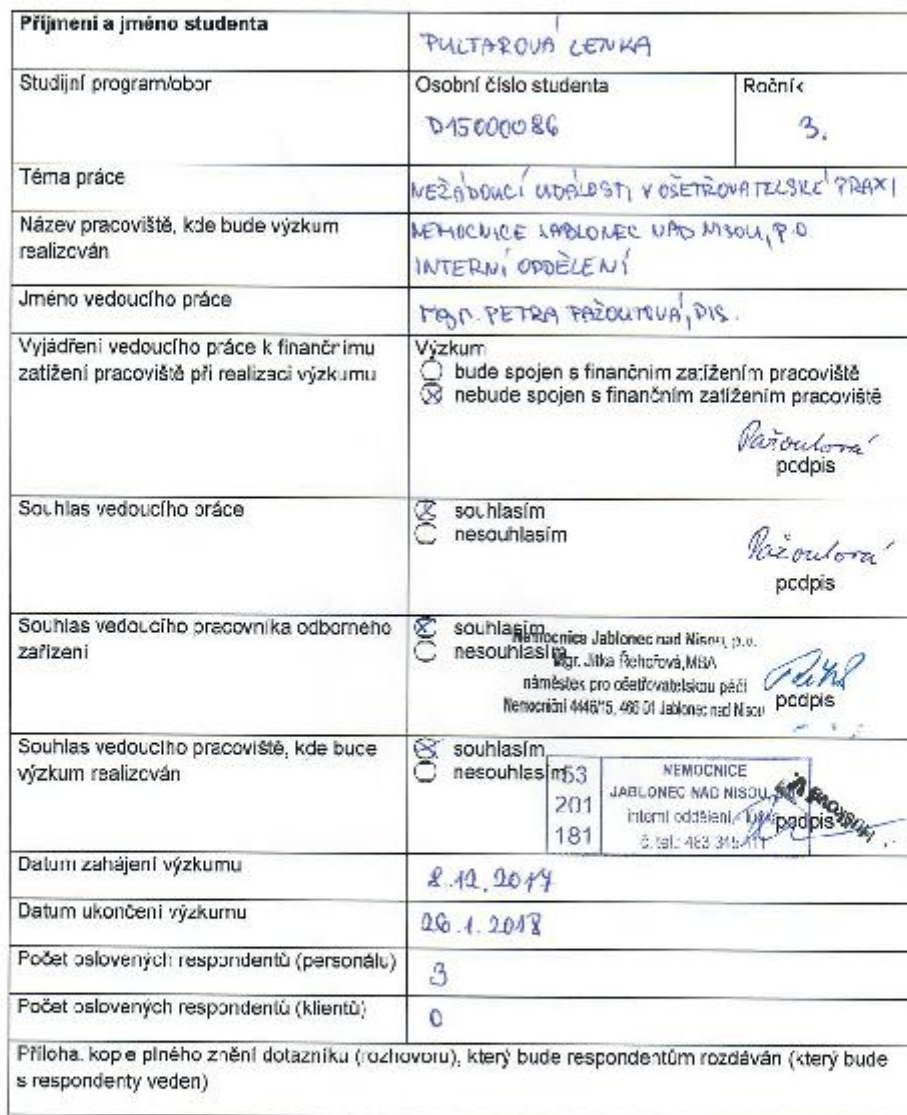 Příjmení a jméno studenta
PULTAROVÁ LENKA
Studijní program/obor
Osobní číslo studenta
D15000086
Ročník
3.
Téma práce
NEŽÁDOUCÍ UDÁLOSTI V OŠETŘOVATELSKÉ PRAXI
Název pracoviště, kde bude výzkum
realizován
NEMOCNICE JABLONEC NAD NISOU, P.O.
INTERNÍ ODDĚLENÍ
Jméno vedoucího práce
Mgr. PETRA PAŽOUTOVÁ, DIS.
Vyjádření vedoucího práce k finančnímu
zatížení pracoviště při realizaci výzkumu
Výzkum
bude spojen s finančním zatížením pracoviště
nebude spojen s finančním zatížením pracoviště
Pažoutová
podpis
Souhlas vedoucího práce
souhlasím
nesouhlasím
Pažoutová
podpis
Souhlas vedoucího pracovníka odborného
zařízení
souhlasím
nesouhlasím
Nemocnice Jablonec nad Nisou, p.o.
Mgr. Jitka Řehořová, MBA
náměstek pro ošetřovatelskou péči
Nemocniční 4446/15, 466 01 Jablonec nad Nisou
podpis
Souhlas vedoucího pracoviště, kde bude
výzkum realizován
souhlasím
nesouhlasím
53
201
181
NEMOCNICE
JABLONEC NAD NISOU,
interní oddělení
č. tel.: 483 345
podpis
Datum zahájení výzkumu
8.12.2017
Datum ukončení výzkumu
26.1.2018
Počet oslovených respondentů (personálu)
3
Počet oslovených respondentů (klientů)
0
Příloha: kopie plného znění dotazníku (rozhovoru), který bude respondentům rozdáván (který bude
s respondenty veden)